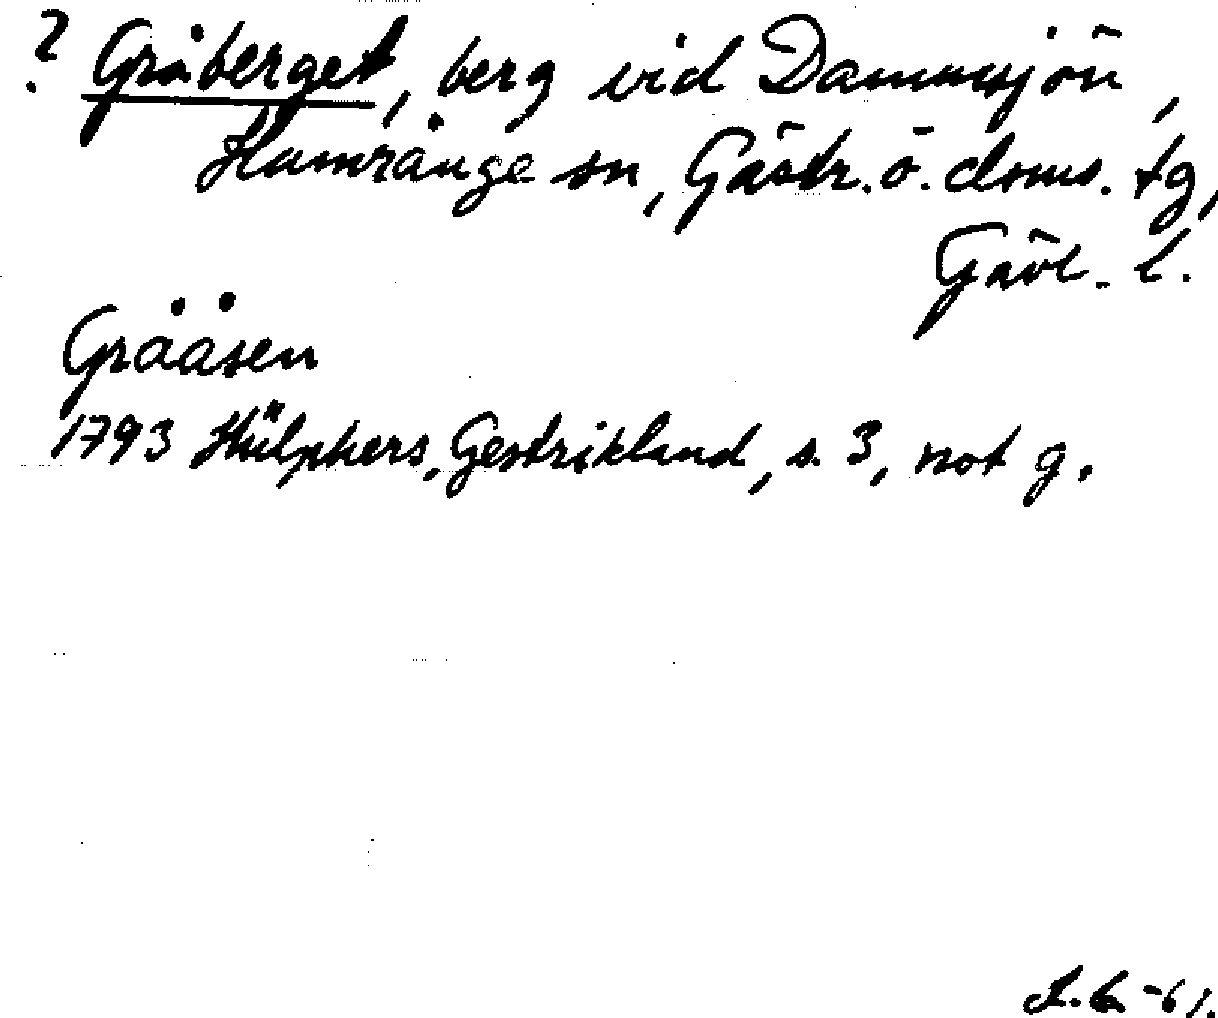 ? Gråberget, berg vid Dammsjön,
Hamrånge sn, Gästr. ö. doms. tg,
Gävl. l.
Grååsen
1793 Hülphers, Gestrikland, s. 3, not g.
-61.